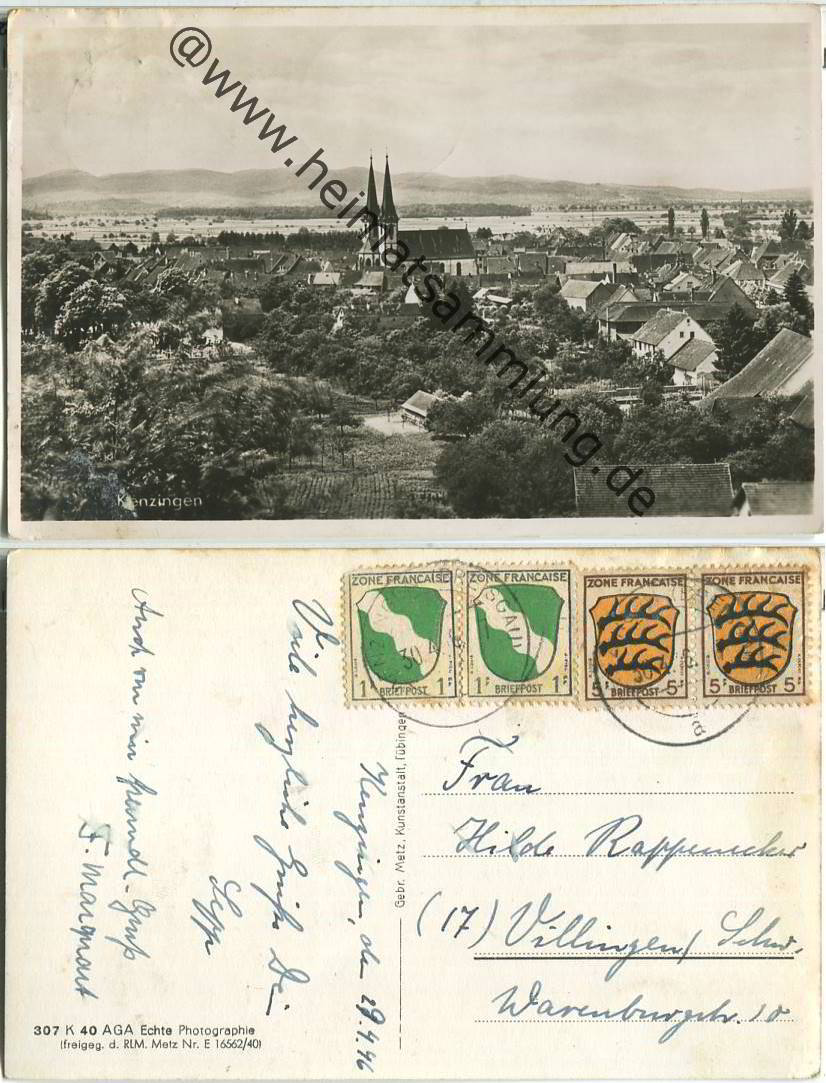 @www.heimatsammlung.de
Kenzingen
ZONE FRANCAISE
1F BRIEFPOST 1F
ZONE FRANCAISE
1F BRIEFPOST 1F
ZONE FRANCAISE
5F BRIEFPOST 5F
ZONE FRANCAISE
5F BRIEFPOST 5F
30.4
a
Kenzingen, den 29.4.46
Viele herzliche Grüße Dein
Sepp
Auch von mir freundl. Gruß
Gebr. Metz, Kunstanstalt, Tübingen
Frau
Hilde Rappenecker
(17) Villingen/Schw.
Warenburgstr. 10
307 K 40 AGA Echte Photographie
(freigeg. d. RLM. Metz Nr. E 16562/40)